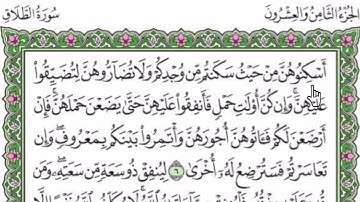 سُورَةُ الطَّلَاقِ
الجُزْءُ الثَّامِنُ وَالعِشْرُونَ
أَسْكِنُوهُنَّ مِنْ حَيْثُ سَكَنتُم مِّن وُجْدِكُمْ وَلَا تُضَآرُّوهُنَّ لِتُضَيِّقُوا۟
عَلَيْهِنَّ ۚ وَإِن كُنَّ أُو۟لَٰتِ حَمْلٍ فَأَنفِقُوا۟ عَلَيْهِنَّ حَتَّىٰ يَضَعْنَ حَمْلَهُنَّ ۚ فَإِنْ
أَرْضَعْنَ لَكُمْ فَـَٔاتُوهُنَّ أُجُورَهُنَّ ۖ وَأْتَمِرُوا۟ بَيْنَكُم بِمَعْرُوفٍ ۖ وَإِن
تَعَاسَرْتُمْ فَسَتُرْضِعُ لَهُۥٓ أُخْرَىٰ ٦ لِيُنفِقْ ذُو سَعَةٍ مِّن سَعَتِهِۦ ۖ وَمَن